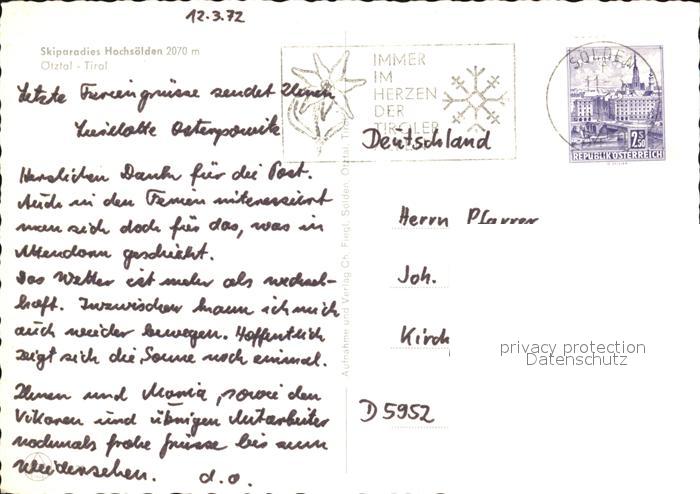 12.3.72
Skiparadies Hochsölden 2070 m
Ötztal - Tirol
IMMER
IM
HERZEN
DER
TIROLER
SÖLDEN
2S50
REPUBLIK ÖSTERREICH
Letzte Feriengrüsse sendet Ihnen
Deutschland
Herzlichen Dank für die Post.
Auch in den Ferien interessiert
man sich doch für das, was in
Attendorn geschieht.
Das Wetter ist mehr als wechsel-
haft. Inzwischen kann ich mich
auch wieder bewegen. Hoffentlich
zeigt sich die Sonne noch einmal.
Ihnen und Maria, sowie den
Vikaren und übrigen Mitarbeiter
nochmals frohe Grüsse bis zum
Wiedersehen. d.o.
Aufnahme und Verlag Ch. Fingl, Sölden, Ötztal, Tirol
Herrn Pfarrer
Joh.
Kirch
privacy protection
Datenschutz
D 5952